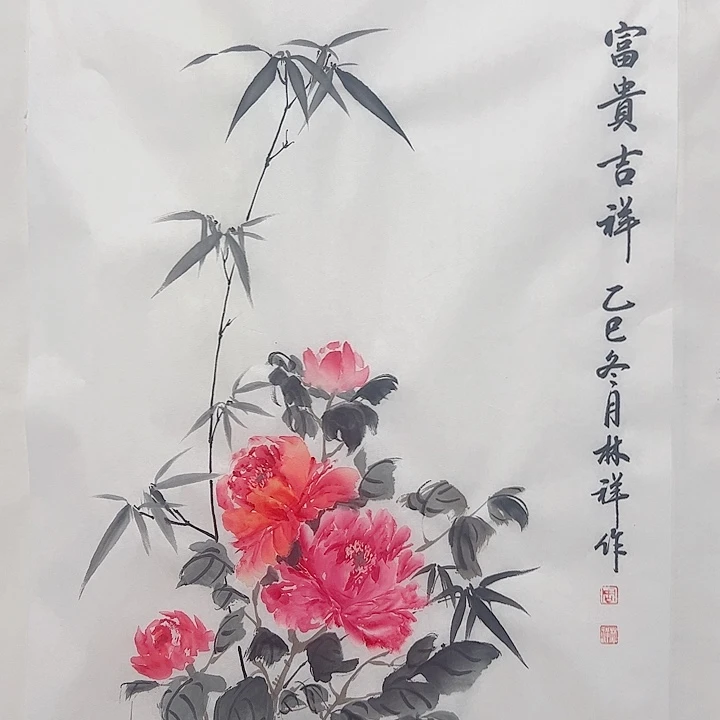 富貴吉祥 乙巳冬月林祥作